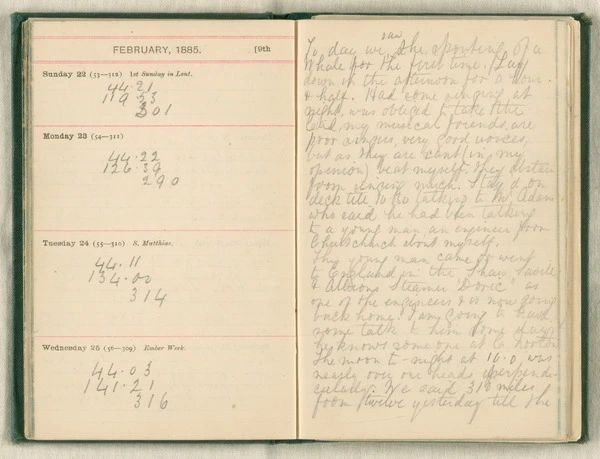 FEBRUARY, 1885.
[9th
Sunday 22 (53—312) 1st Sunday in Lent.
44·21
119 53
301
Monday 23 (54—311)
44·22
126·39
290
Tuesday 24 (55—310) S. Matthias.
44·11
134·00
314
Wednesday 25 (56—309) Ember Week.
44·03
141·21
316
saw
To day we the spouting of a
Whale for the first time. Lay
down in the afternoon for a hour
& half. Had some singing at
night, was obliged to take the
lead, my musical friends are
poor singers, very good voices,
but as they are cant (in my
opinion) beat myself, they abstain
from singing much. Stay'd on
deck till 10·30 talking to Mr Adam
who said he had been talking
to a young man an engineer from
Chuschurch about myself.
This young man came
to England in the Shaw, Saville
& Albions Steamer "Doric" as
one of the engineers & is now going
back home. I am going to have
some talk to him some day
he knows some one at
The moon to-night at 10·0 was
nearly over our heads perpendi-
cularly. We said 316 miles
from twelve yesterday till the